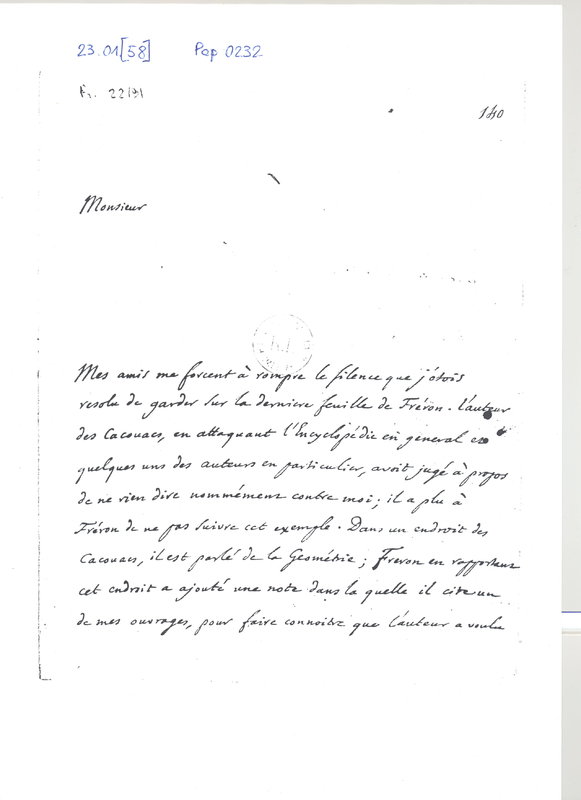 23.01[58] Pap 0232
Fr. 22191
140
Monsieur
Mes amis me forcent à rompre le silence que j'étois
resolu de garder sur la derniere feuille de Fréron. l'auteur
des Cacouacs, en attaquant l'Encyclopédie en general et
quelques uns des auteurs en particulier, avoit jugé à propos
de ne rien dire nommément contre moi; il a plu à
Fréron de ne pas suivre cet exemple. Dans un endroit des
Cacouacs, il est parlé de la Geométrie; Freron en rapportant
cet endroit a ajouté une note dans la quelle il cite un
de mes ouvrages, pour faire connoitre que l'auteur a voulu